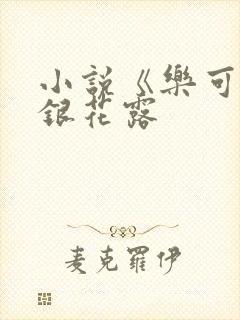 小説《樂可
銀花露
麦克羅伊